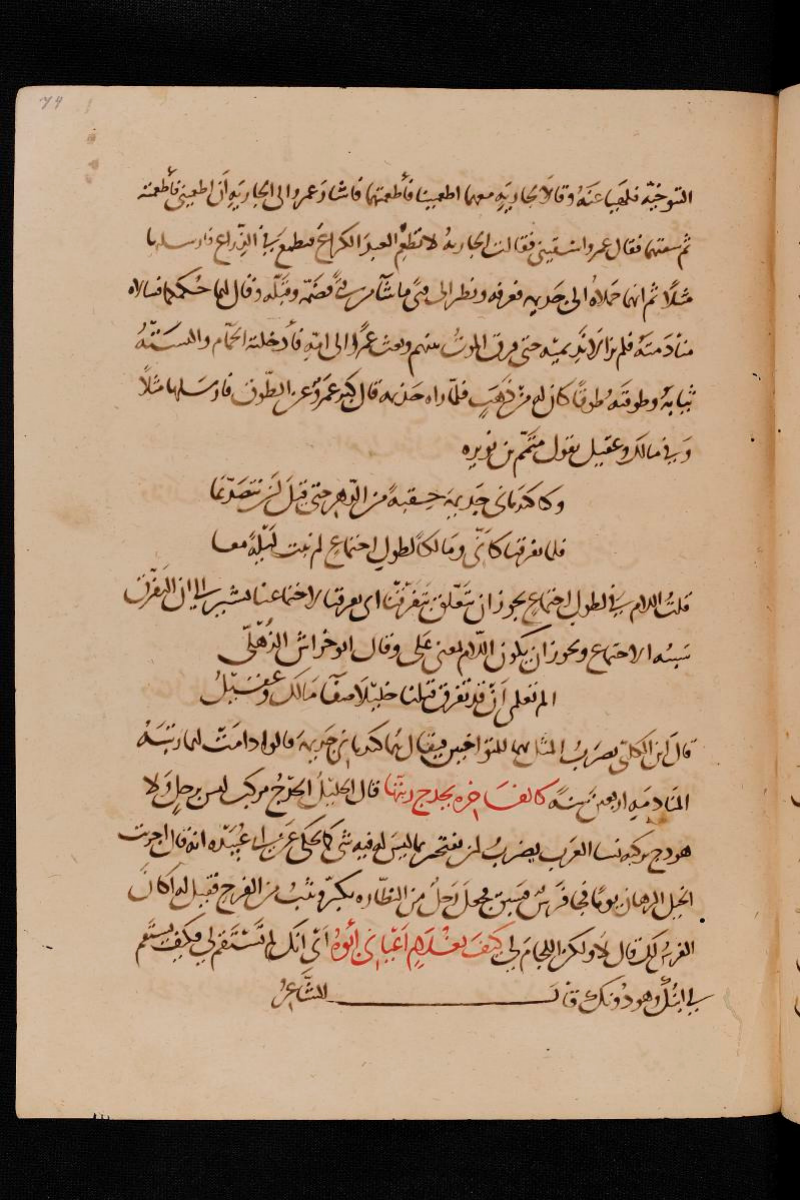 74
التوجّه فلهيا عنه وقالا لجارية معهما اطعمينا فأطعمتهما فاشار عمرو الى الجارية أن اطعميني فأطعمته
ثم سقتهما فقال عمرو اسقيني فقالت الجارية لا تطعم العبد الكراع فيطمع في الذراع فارسلتها
مثلاً ثم انهما حملاه الى جذيمة فعرفه ونظر الى فتى ما شاء من فتى فضمّه وقبّله وقال لهما حكمكما فسالاه
منادمته فلم يزالا نديميه حتى فرق الموت بينهم وبعث عمرًا الى امّه فأدخلته الحمّام والبسته
ثيابه وطوقته طوقًا كان له من ذهب فلمّا راه جذيمة قال كبر عمرو عن الطوق فارسلها مثلاً
وفي مالك وعقيل يقول متمّم بن نويره
وكنا كندماني جذيمة حقبة من الدهر حتى قيل لن نتصدّعا
فلما تفرقنا كأنّي ومالكًا لطول اجتماع لم نبت ليلة معا
قلتُ اللام في لطول اجتماع يجوز ان تتعلّق بتفرّقنا اى تفرقنا لاجتماعنا يشير الى ان التفرّق
سببه الاجتماع ويجوز ان يكون اللام بمعنى على وقال ابو خراش الهذلّي
الم تعلمي أن قد تفرق قبلنا خليلا صفا مالك وعقيلُ
قال ابن الكلبيّ يضرب المثل بهما للمتواخيين فيقال هما كندماني جذيمة قالوا دامت لهما رتبة
المنادمة اربعين سنة كالفاخرة بحدج ربتها قال الخليل الحدج مركب ليس برحل ولا
هودج تركبه نسا العرب يضرب لمن يفتخر بما ليس له فيه شي كما يحكى عن ابي عبيدة انه قال اجريت
الخيل للرهان يومًا فجا فرس فسبق فجعل رجل من النظاره يكبر ويثب من الفرح فقيل له اكان
الفرس لك قال لا ولكن اللجام لي كيف بغلام اعياني أبوه اى انك لم تستقم لي فكيف يستقم
لي ابنك وهو دونك قال الشاعر